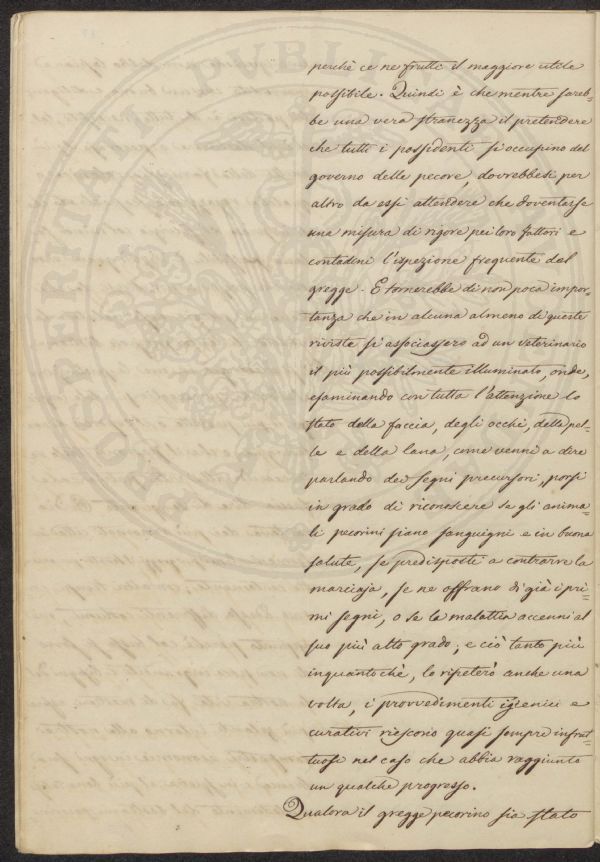 perchè ce ne frutti il maggiore utile
possibile. Quindi è che mentre sareb=
be una vera stranezza il pretendere
che tutti i possidenti si occupino del
governo delle pecore, dovrebbesi per
altro da essi attendere che doventasse
una misura di rigore pei loro fattori e
contadini l'ispezione frequente del
gregge. E tornerebbe di non poca impor=
tanza che in alcuna almeno di queste
riviste si associassero ad un veterinario
il più possibilmente illuminato, onde,
esaminando con tutta l'attenzione lo
stato della faccia, degli occhi, della pel=
le e della lana, come venni a dire
parlando dei segni precursori, porsi
in grado di riconoscere se gli anima=
li pecorini siano sanguigni e in buona
salute, se predisposti a contrarre la
marciaja, se ne offrano di già i pri=
mi segni, o se la malattia accenni al
suo più alto grado; e ciò tanto più
inquantochè, lo ripeterò anche una
volta, i provvedimenti igienici e
curativi riescono quasi sempre infrut=
tuosi nel caso che abbia raggiunto
un qualche progresso.
Qualora il gregge pecorino sia stato